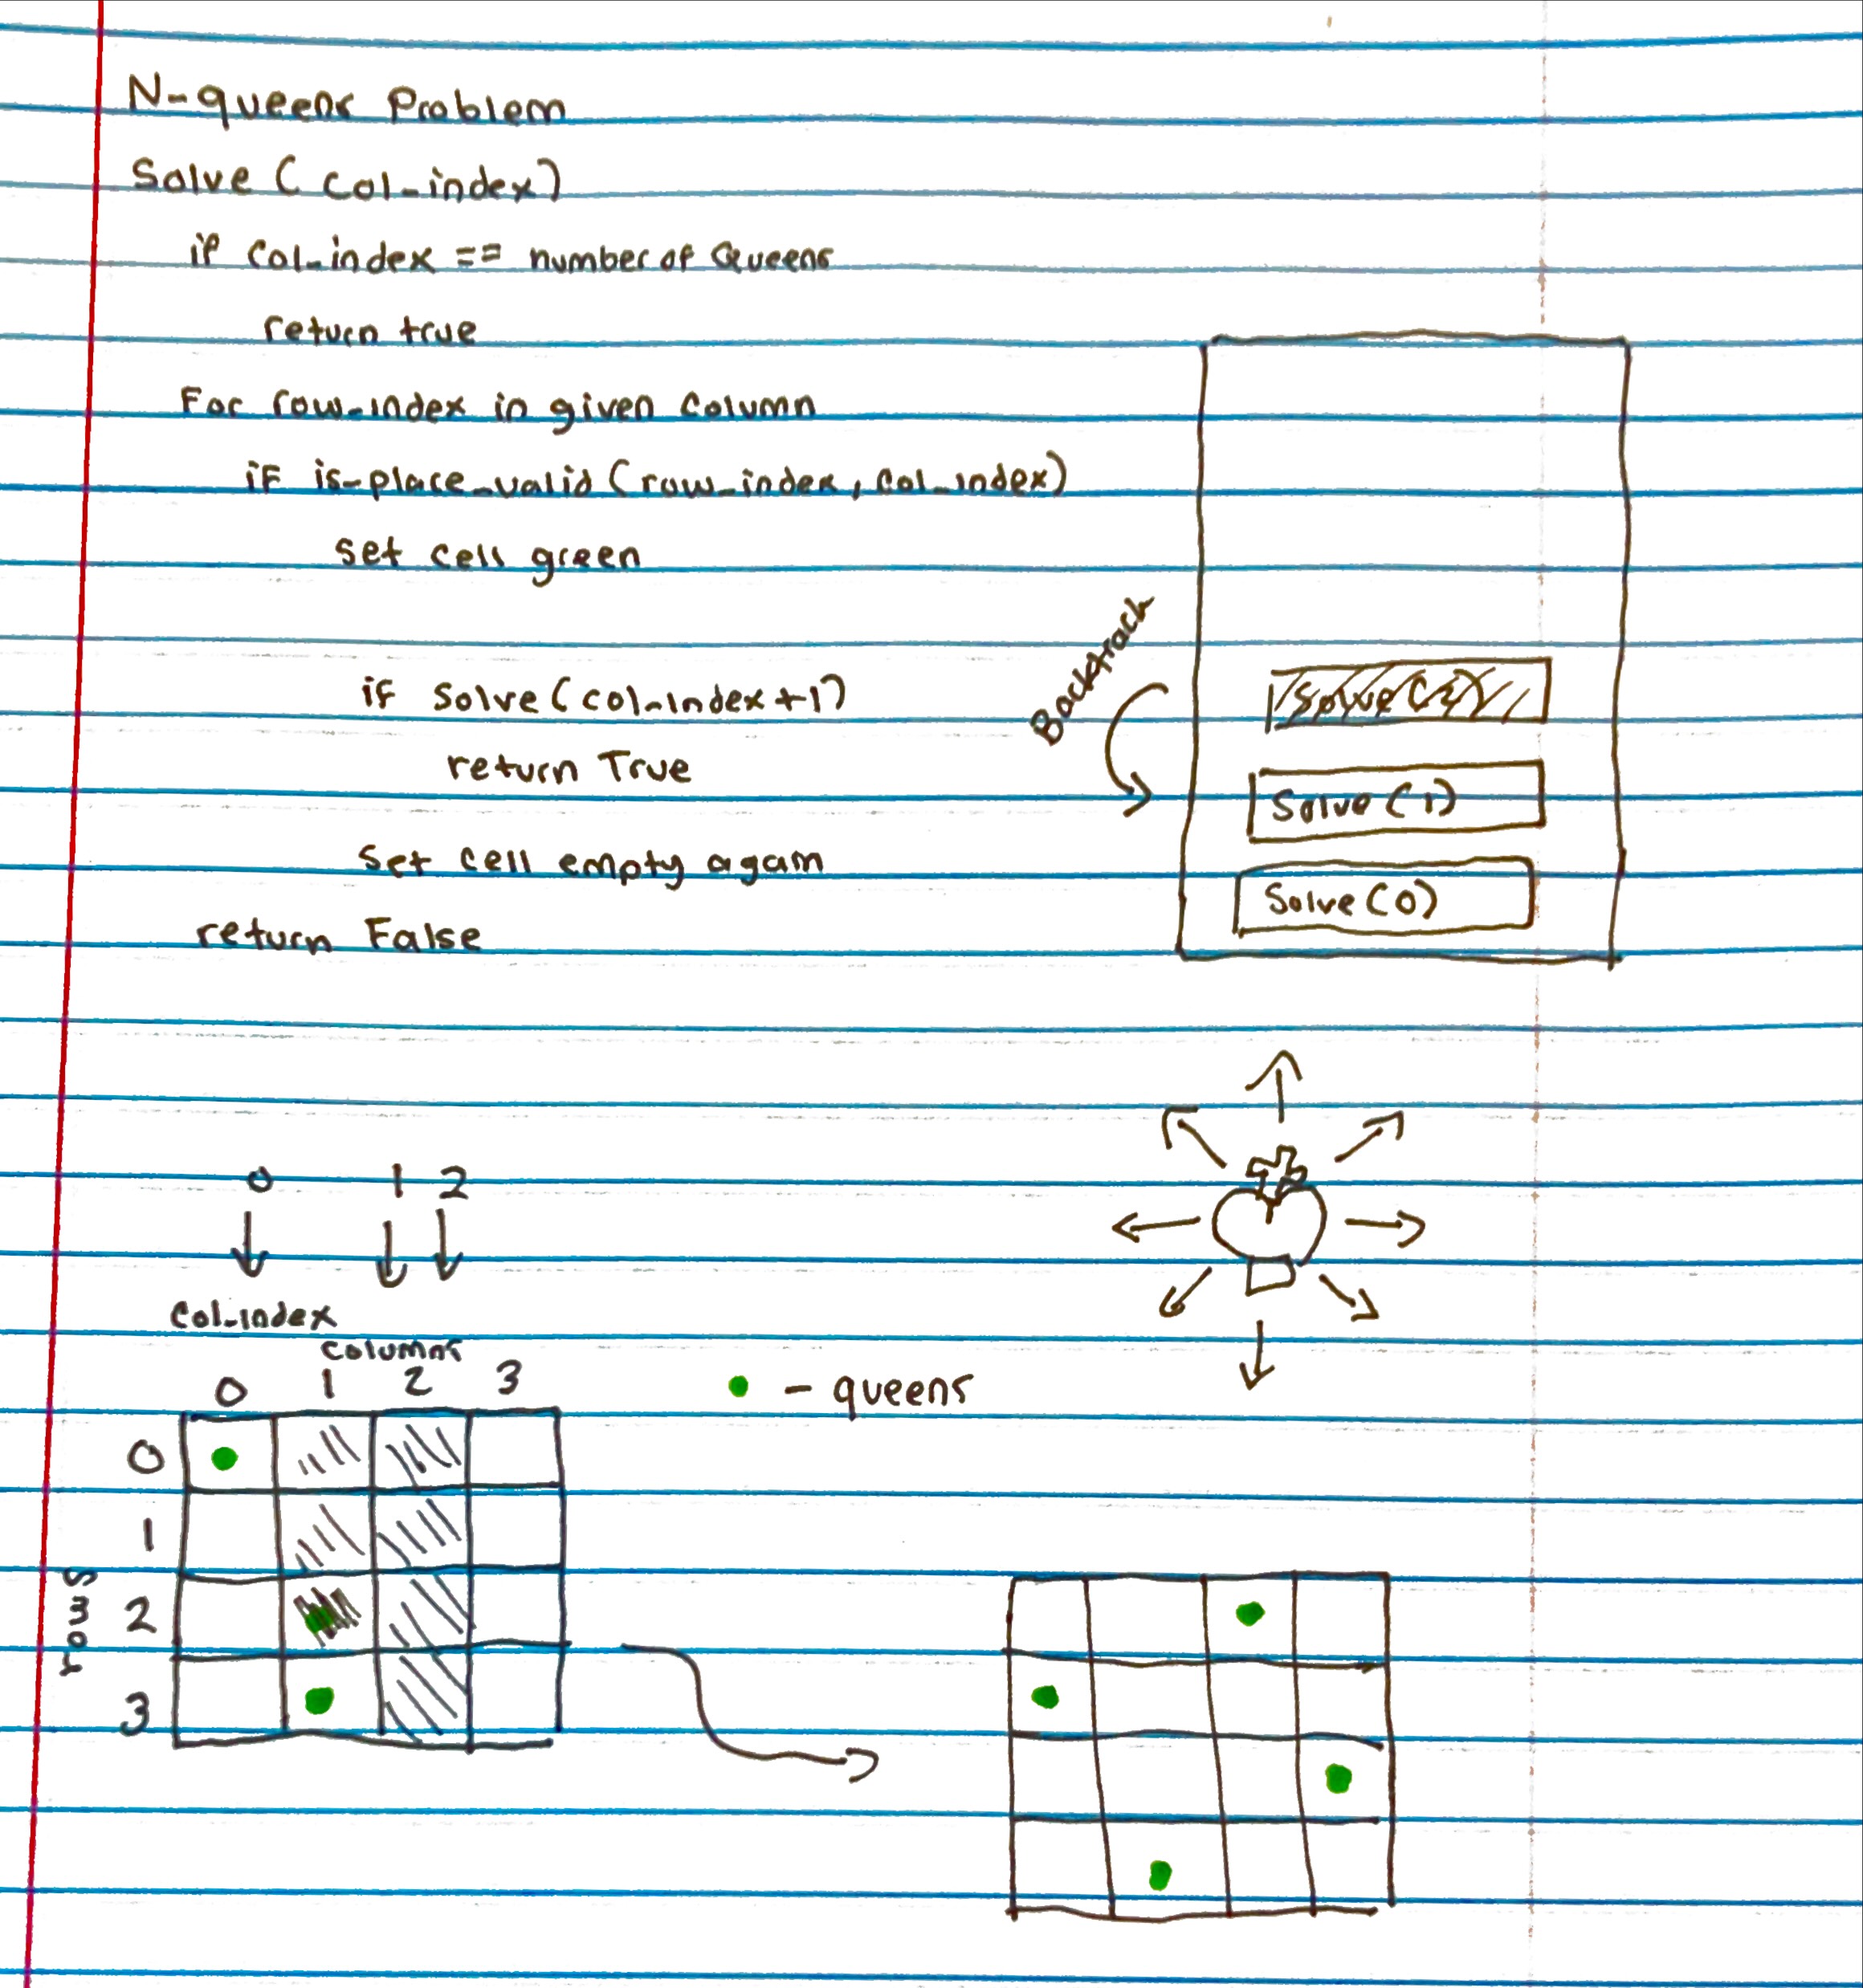 N-queens Problem
Solve ( col_index)
if col_index == number of Queens
return true
For row_index in given column
if is_place_valid (row_index, col_index)
set cell green
if solve (col_index+1)
return True
set cell empty again
return False
Backtrack
Solve (2)
Solve (1)
Solve (0)
0 1 2
col_index
columns
0 1 2 3
- queens
rows
0
1
2
3